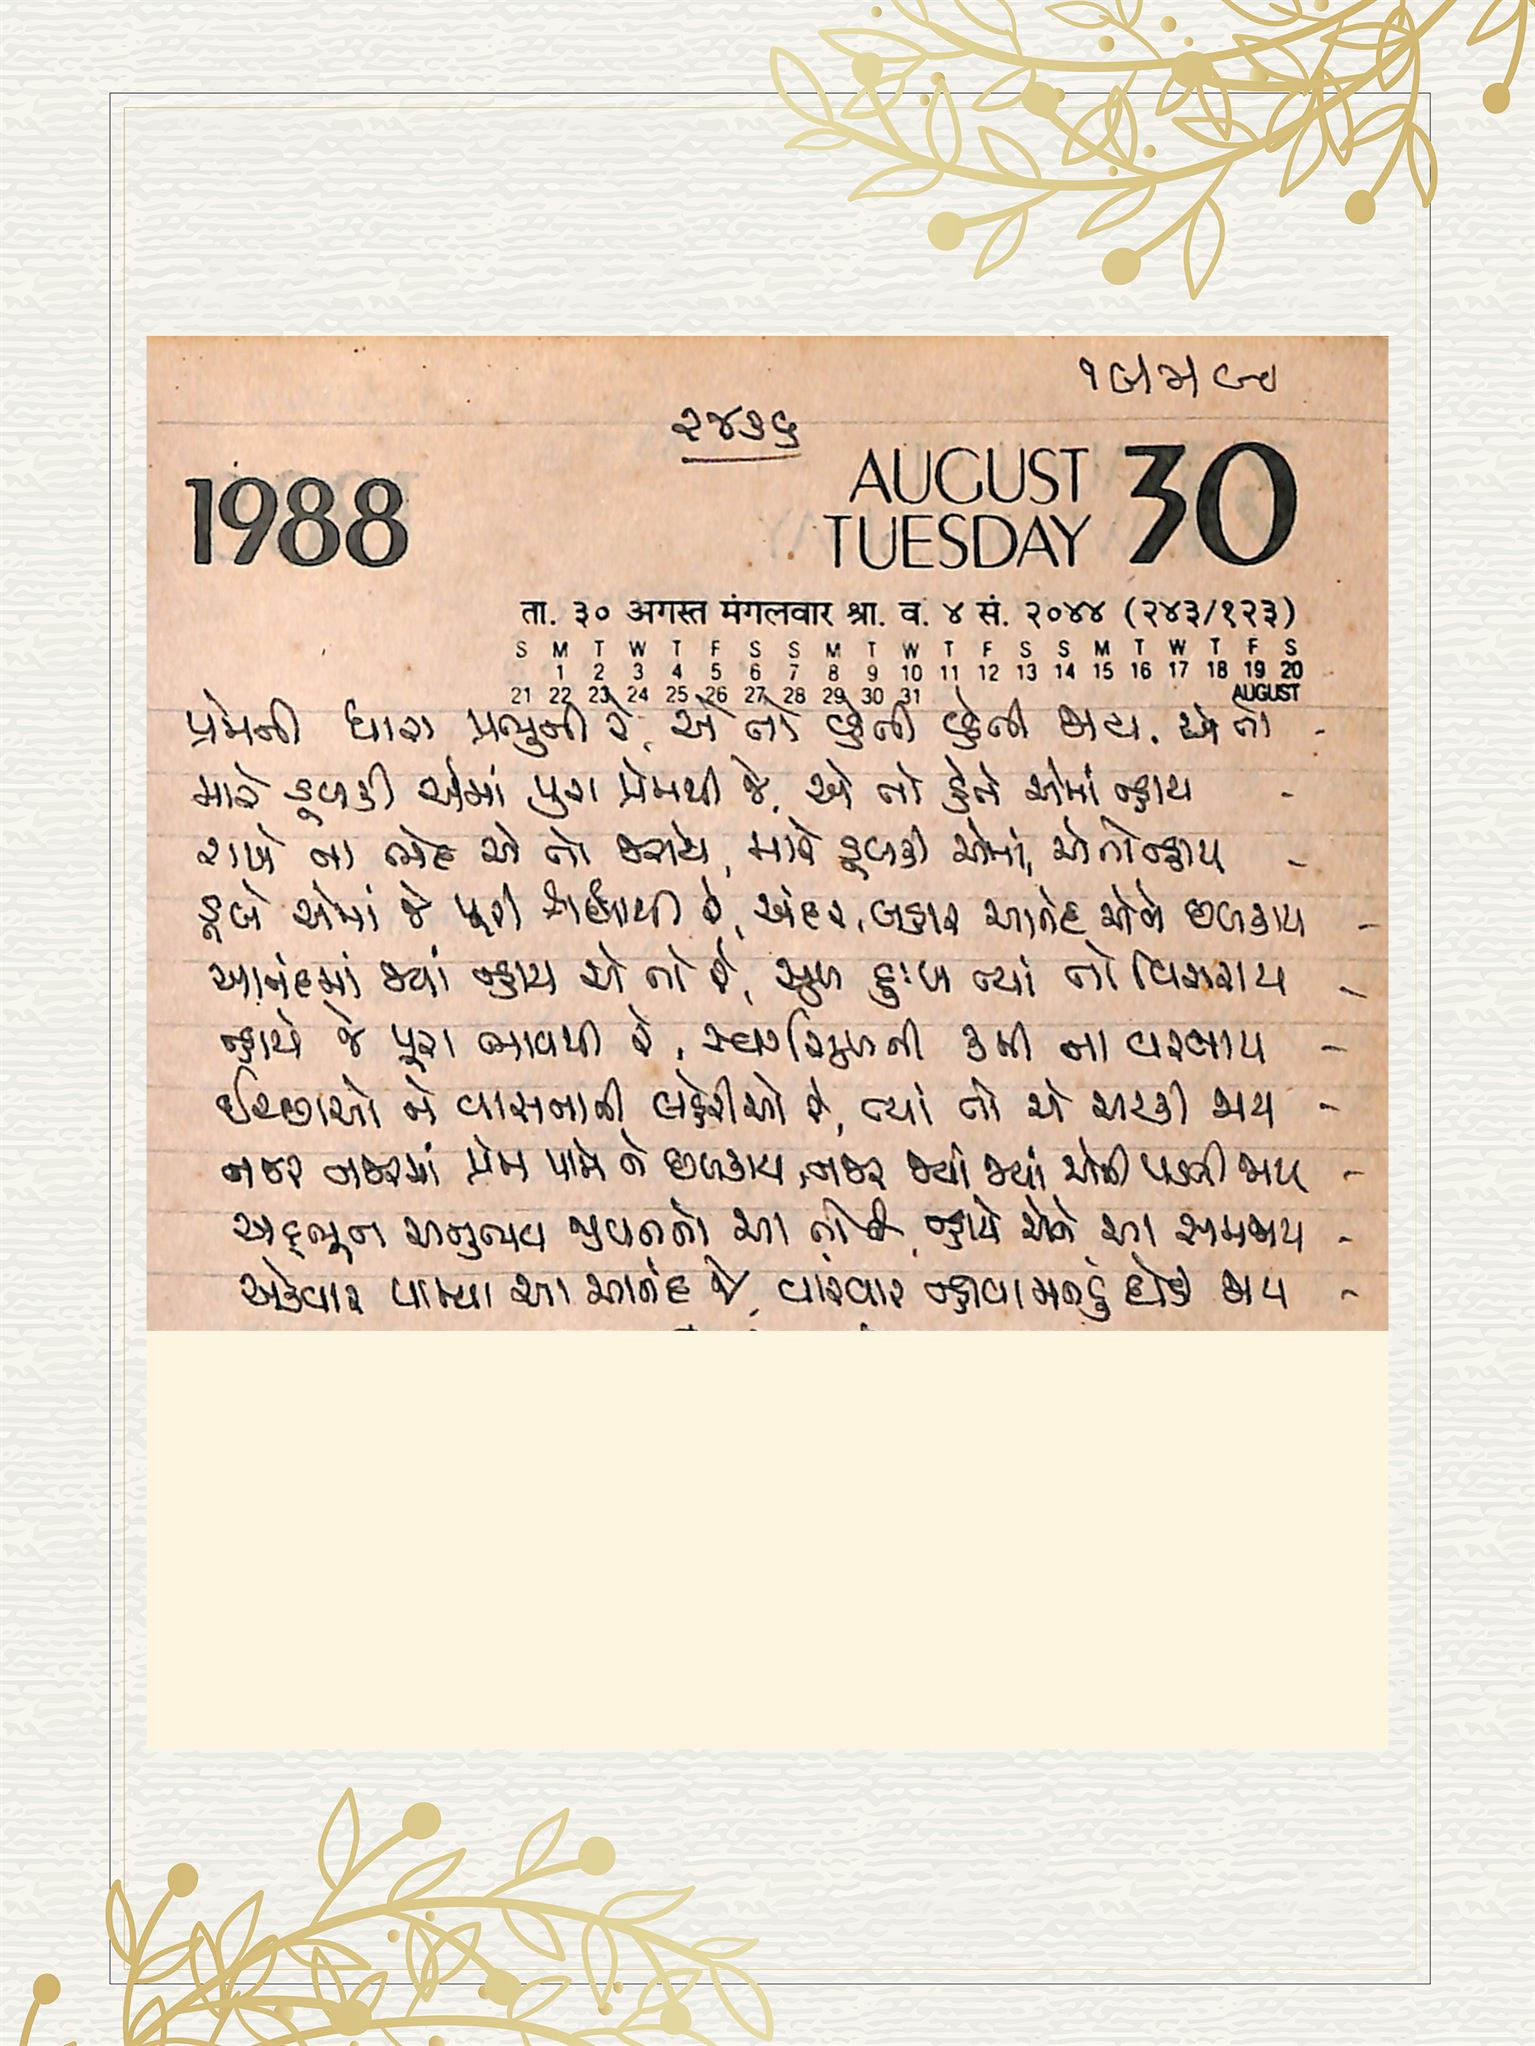 ૨૪૩૬
1988
AUGUST 30
TUESDAY
ता. ३० अगस्त मंगलवार श्रा. व. ४ सं. २०४४ (२४३/१२३)
S M T W T F S S M T W T F S S M T W T F S
1 2 3 4 5 6 7 8 9 10 11 12 13 14 15 16 17 18 19 20
21 22 23 24 25 26 27 28 29 30 31 AUGUST
પ્રેમની ધારા પ્રભુની રે, એ તો વ્હેતી વ્હેતી જાય. એ તો -
મારે ડૂબકી એમાં પુરા પ્રેમથી જે, એ તો એમાં ન્હાય -
રાખે ના ભેદ એ તો જરાયે, મારે ડૂબકી એમાં, એ તો ન્હાય -
ડૂબે એમાં જે પૂરી રે, અંદર, બહાર આનંદ એને છલકાય -
આનંદમાં જ્યાં ન્હાય એ તો રે, સુખ દુઃખ ત્યાં તો વિસરાય -
ન્હાયે જે પૂરા ભાવથી રે, ની કમી ના વરતાય -
ઈચ્છાઓ ને વાસનાની લહેરીઓ રે, ત્યાં તો એ સરકી જાય -
નજર નજરમાં પ્રેમ પામે ને છલકાય, નજર જ્યાં જ્યાં એની પડતી જાય -
અદ્ભૂત અનુભવ જીવનનો આ તો રે, ન્હાયે એને આ સમજાય -
એકવાર પામ્યા આ આનંદ જે, વારંવાર ન્હાવા મનડું દોડી જાય -